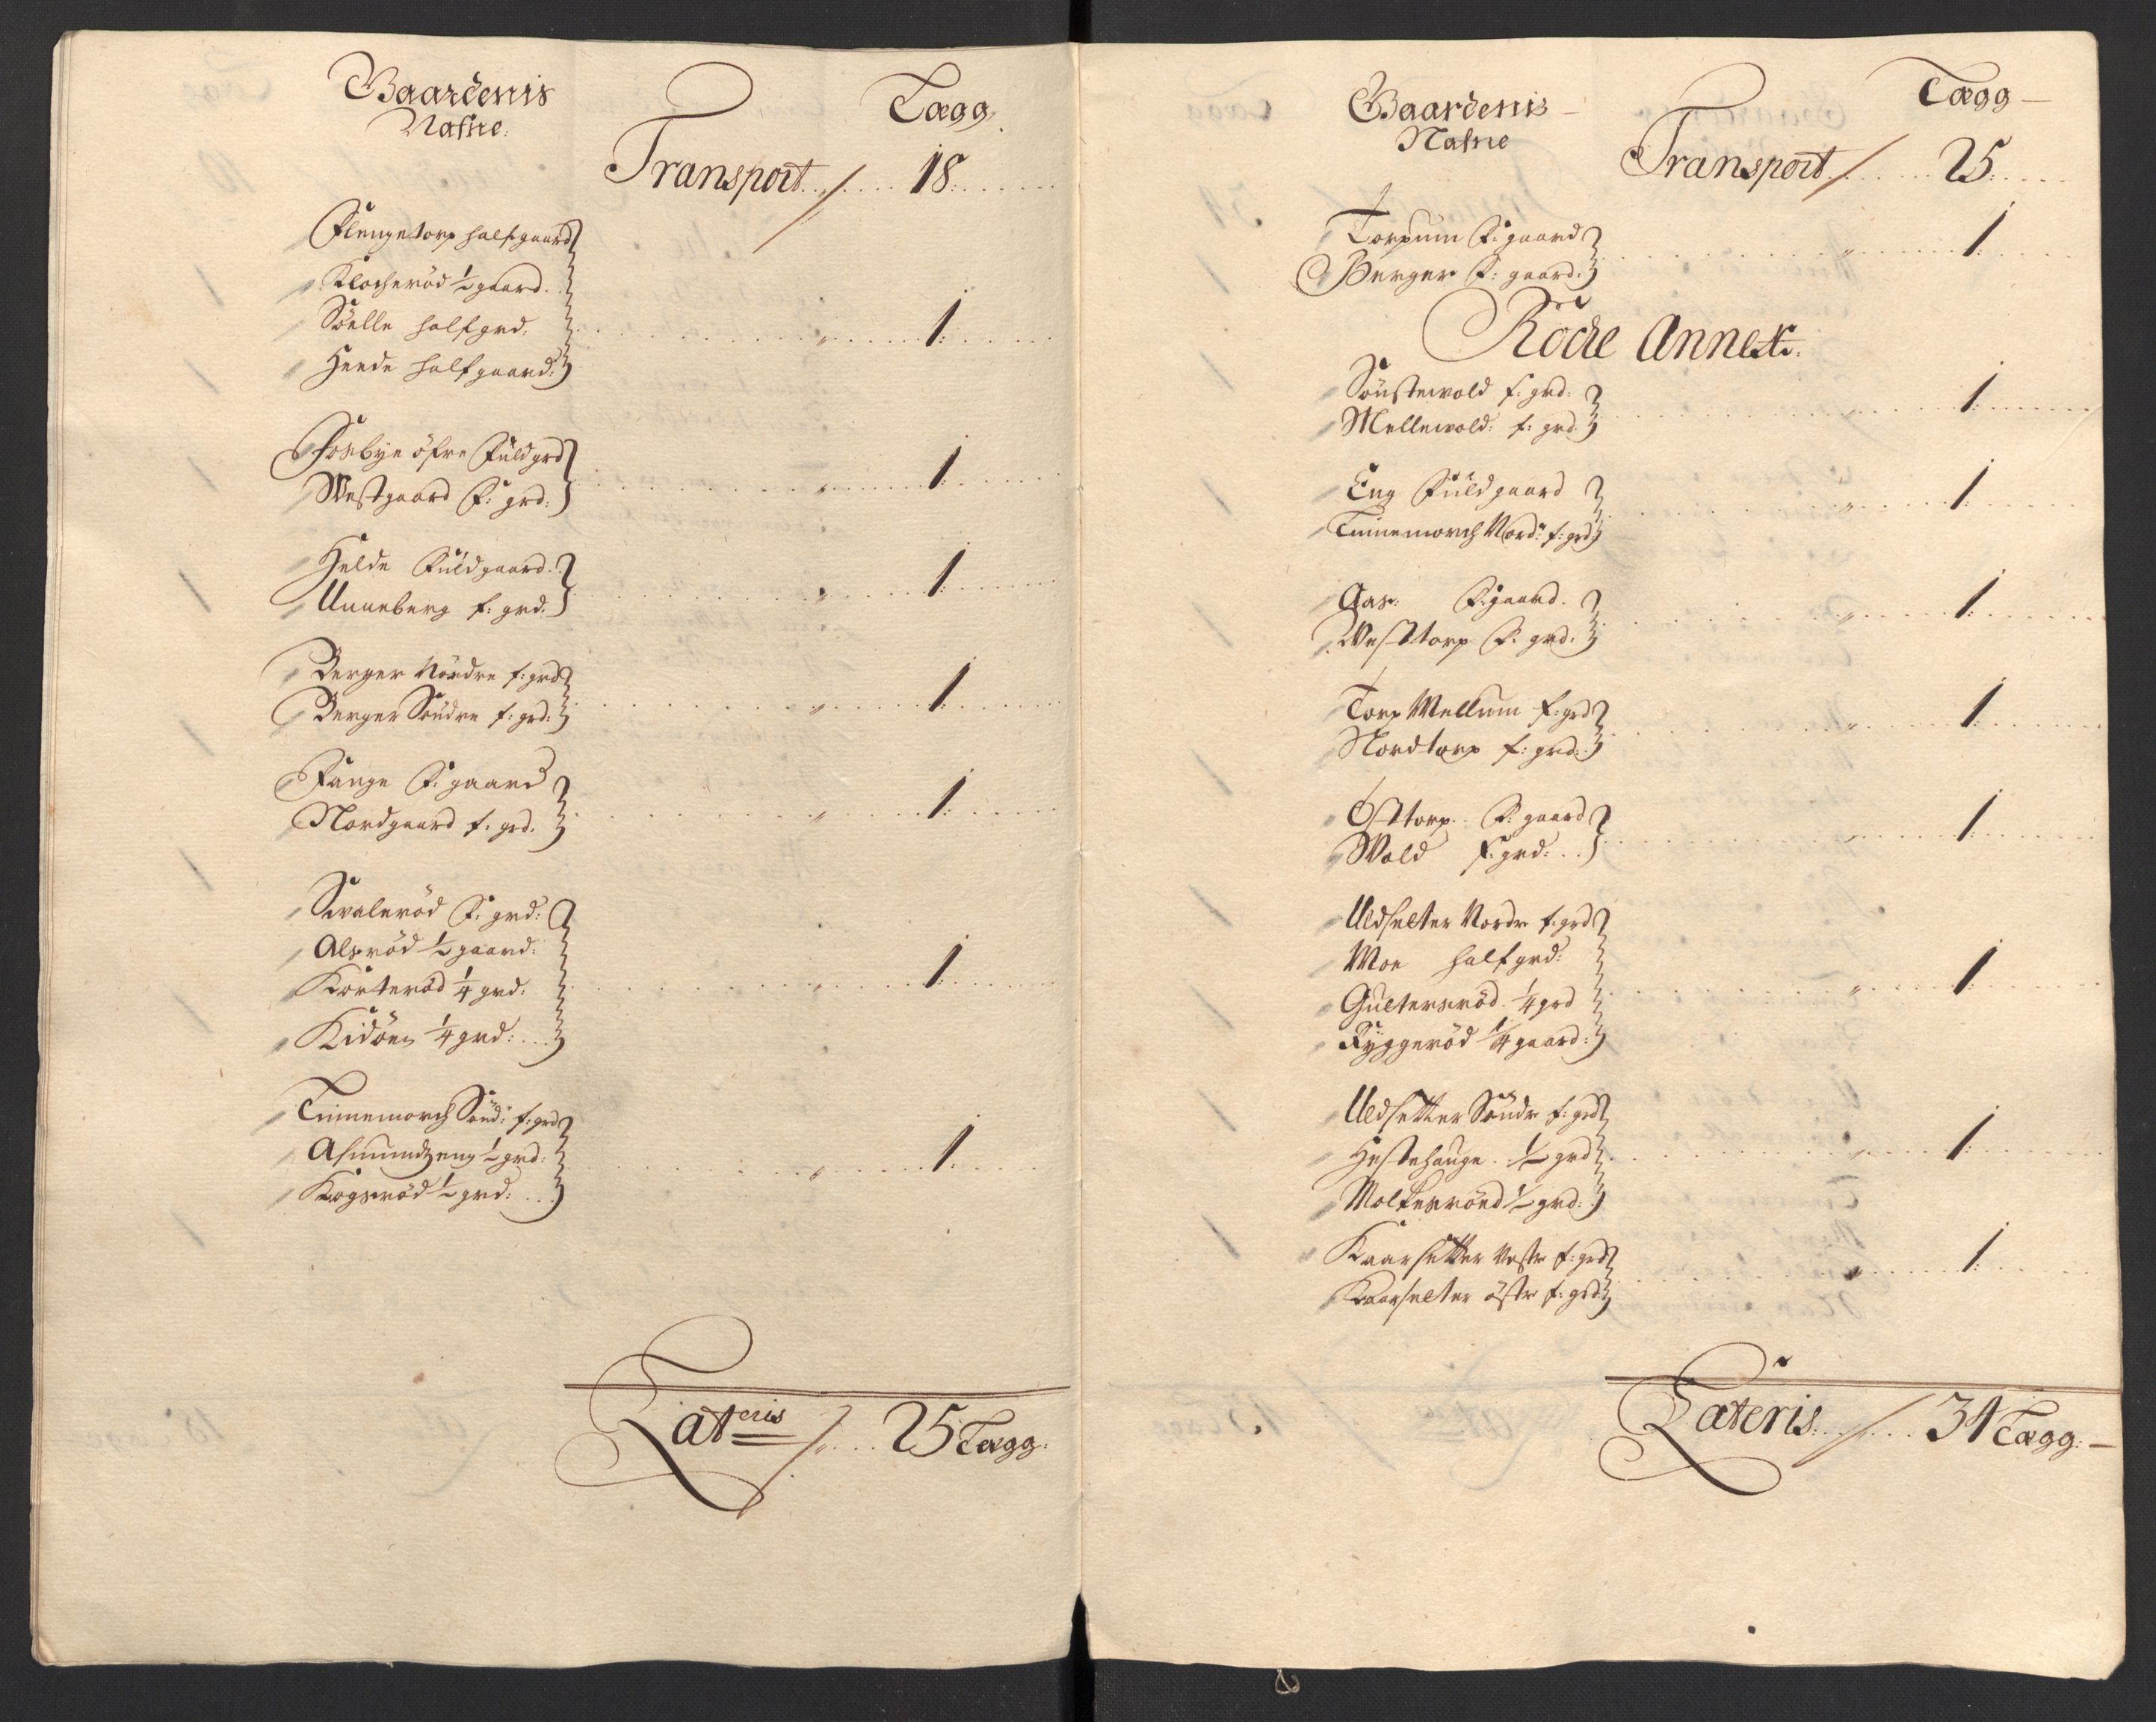 Gaardenis
Nafne.
Lægg.
Transport 18
Flengetorp halfgaard
Klocheröd 1/2 gaard
Söelle halfgrd:
Heede halfgaard: 1
Fosbye öfre Fuldgrd
Westgaard F: grd: 1
Helde Fuldgaard
Unneberg f: grd. 1
Berger Nordre f: grd
Berger Söndre f: grd: 1
Fange F: gaard
Nordgaard f: grd. 1
Swaleröd F: grd:
Alsröd 1/2 gaard:
Korteröd 1/4 grd:
Kidöen 1/4 grd: 1
Tinnemorch Sönd: f: grd
Asmundzeng 1/2 grd:
Kogsröd 1/2 grd: 1
Lateris 25 Lægg:
Gaardenis
Nafne
Lægg
Transport 25
Torpum F: gaard
Berger F: gaard: 1
Röde Annex:
Sönstewold f: grd:
Mellewold: f: grd 1
Eng Fuldgaard
Tinnemorch Nord: f: grd 1
Aas: F: gaard.
Westtorp F: grd: 1
Torp Mellum f: grd
Nordtorp f: grd: 1
Osttorp F: gaard
Wold f: grd: 1
Udsetter Nordr f: grd
Moe halfgrd:
Gultersröd 1/4 grd
Ryggeröd 1/4 gaard: 1
Udsetter Söndr f: grd
Hestehauge 1/2 grd
Molkesröed 1/2 grd: 1
Kaarsetter Vestr f: grd
Kaarsetter östr f: grd: 1
Lateris 34 Lægg: